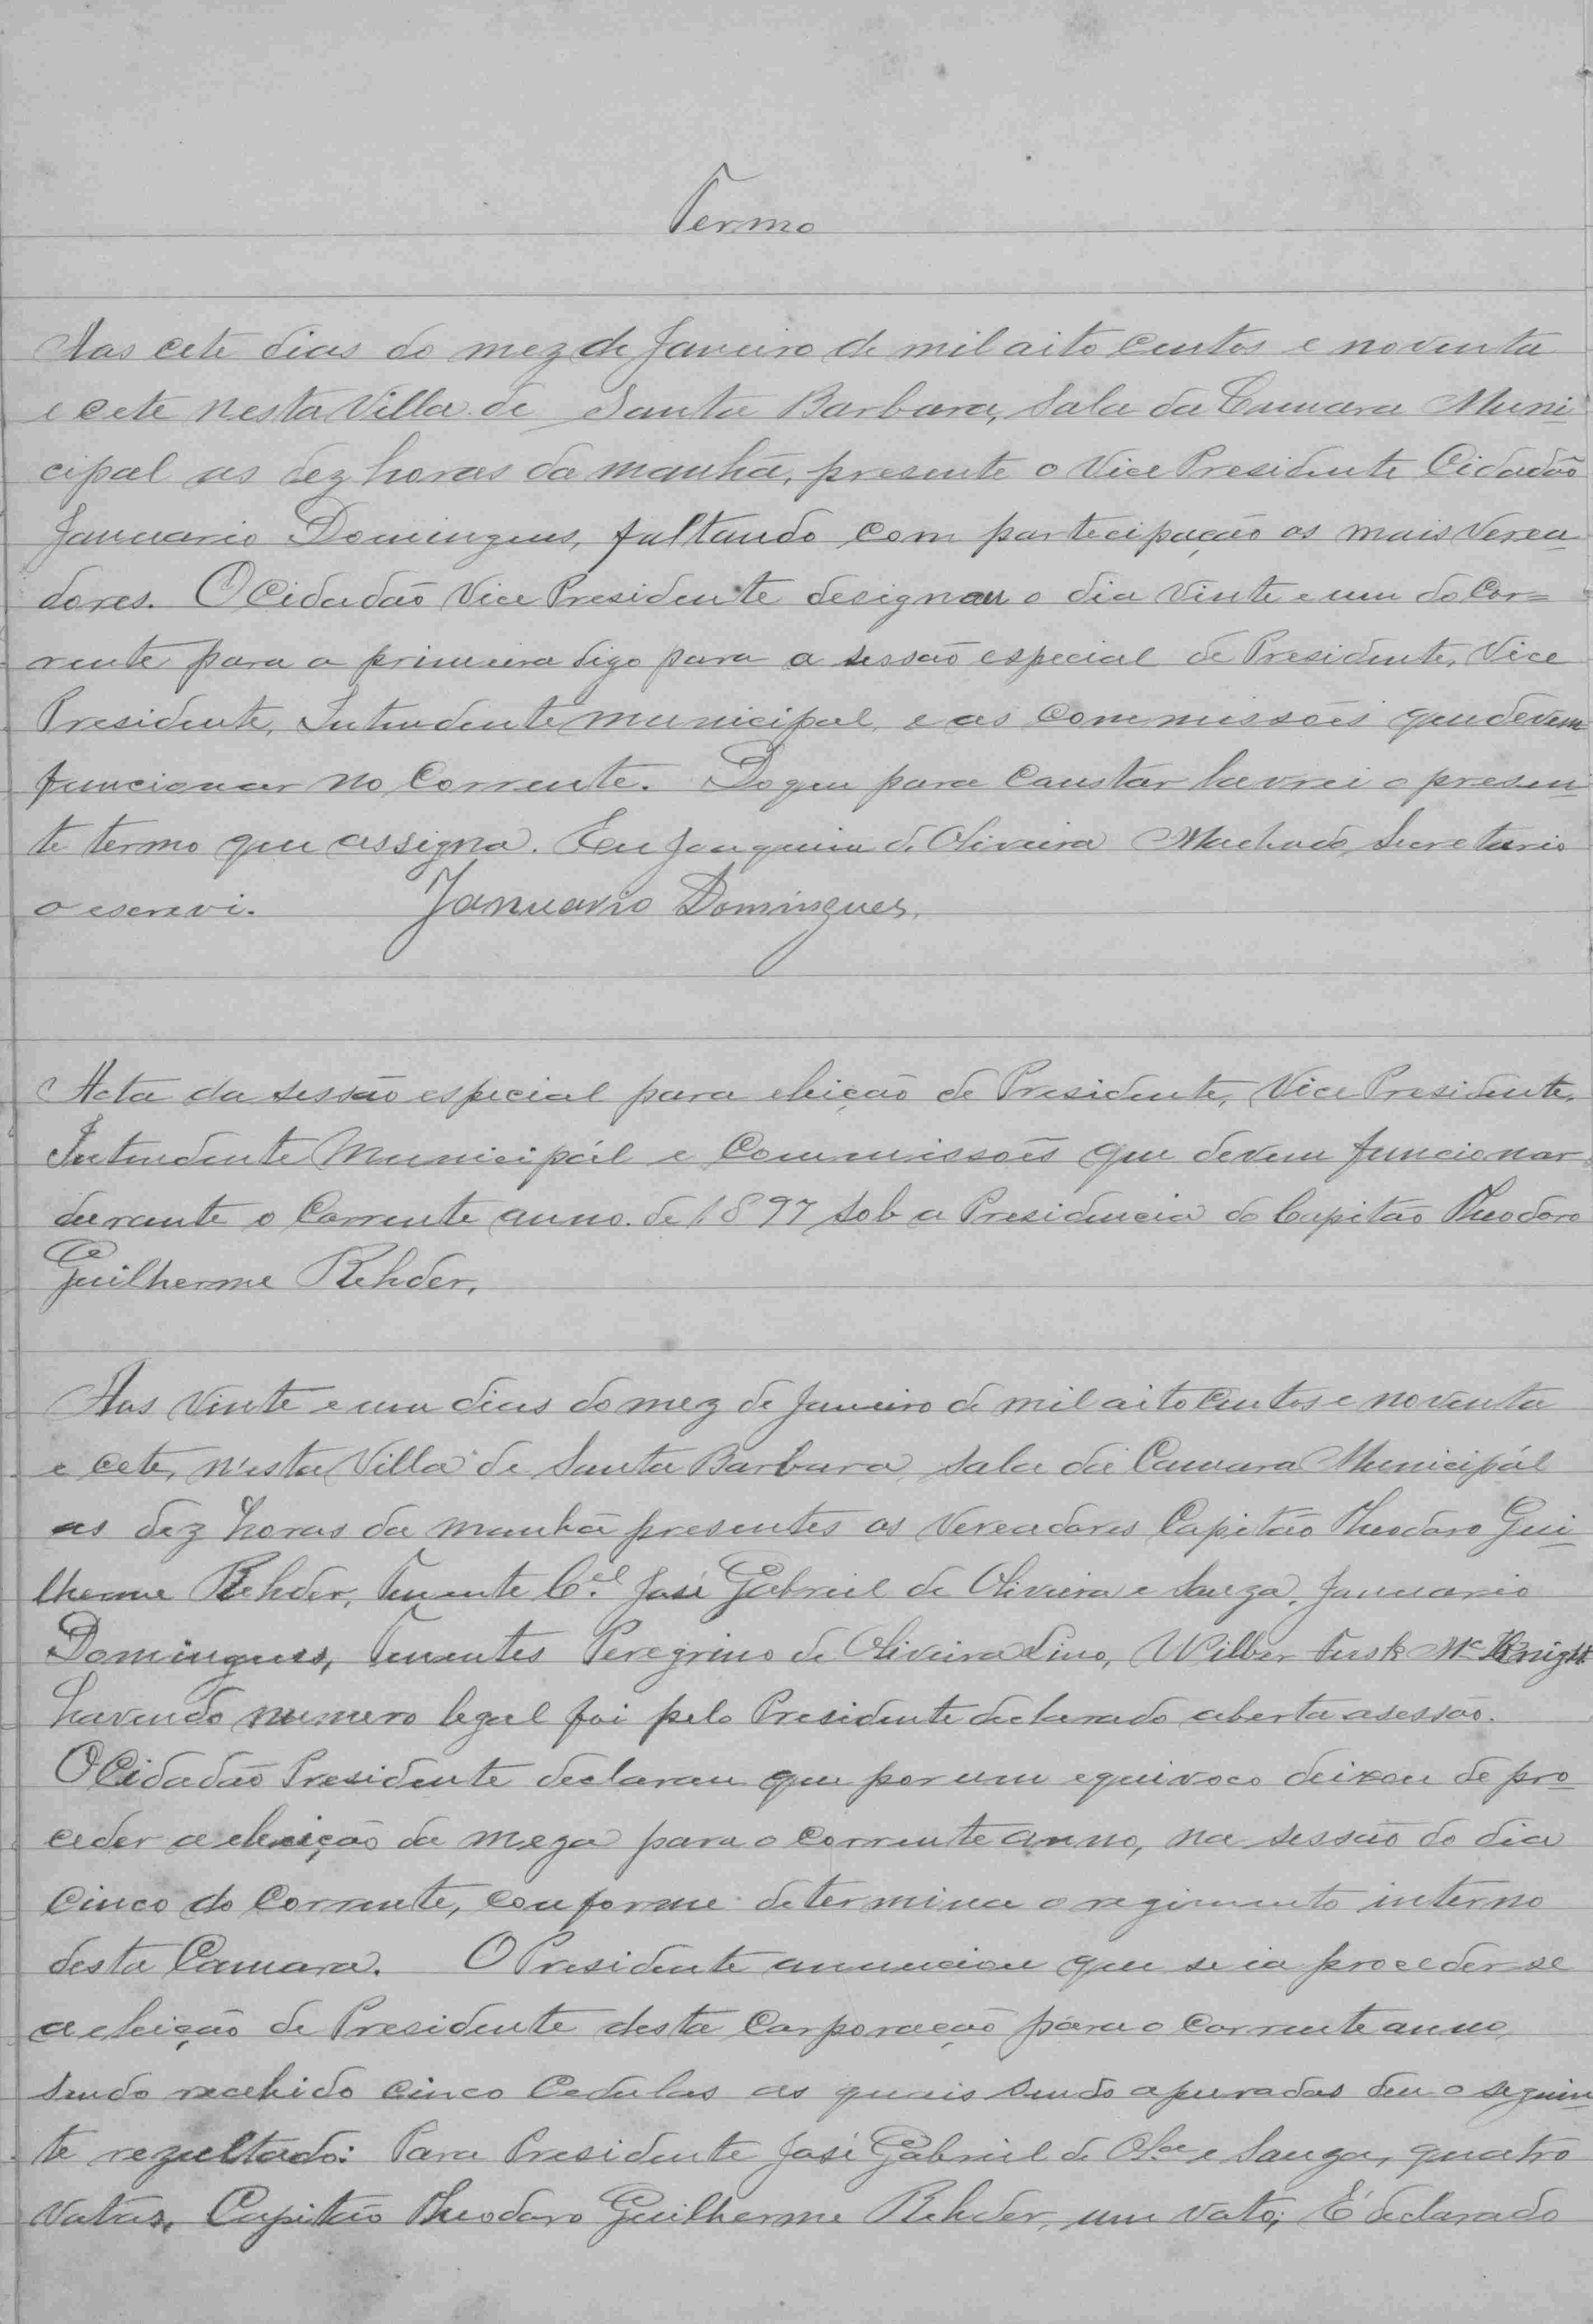 Termo
Aos cete dias do mez de Janeiro de mil oito centos e noventa
e cete nesta Villa de Santa Barbara, Sala da Camara Muni
cipal as dez horas da manhã, presente o Vice Presidente Cidadão
Januario Domingues, faltando com partecipação os mais Verea
dores. O Cidadão Vice Presidente designou o dia vinte e um do Cor=
rente para a primeira digo para a sessão especial de Presidente, Vice
Presidente, Intendente municipal, e as commissões que devem
funcionar no Corrente. Do que para Constar lavrei o presen
te termo que assigna. Eu Joaquim de Oliveira Machado, Secretario
o escrevi. Januario Domingues.
Acta da sessão especial para eleição de Presidente, Vice Presidente,
Intendente Municipál e Commissões que devem funcionar
durante o Corrente anno de 1897 sob a Presidencia do Capitão Theodoro
Guilherme Rehder.
Aos Vinte e um dias do mez de Janeiro de mil oito centos e noventa
e cete, n'esta Villa de Santa Barbara, Sala da Camara Municipál
as dez horas da manhã presentes os Vereadores Capitão Theodoro Gui
lherme Rehder, Tenente Cel José Gabriel de Oliveira e Souza, Januario
Domingues, Tenentes Peregrino de Oliveira Lino, Wilber Fisk McKnight
havendo numero legal foi pelo Presidente declarado aberta a sessão.
O Cidadão Presidente declarou que por um equivoco deixou de pro
ceder a eleição da meza para o corrente anno, na sessão do dia
Cinco do Corrente, conforme determina o regimento interno
desta Camara. O Presidente annunciou que se ia proceder-se
a eleição de Presidente desta Corporação para o Corrente anno,
sendo recebido cinco Cedulas as quais sendo apuradas deu o seguin
te rezultado: Para Presidente José Gabriel de Olª e Souza, quatro
Votos, Capitão Theodoro Guilherme Rehder, um Voto; É declarado